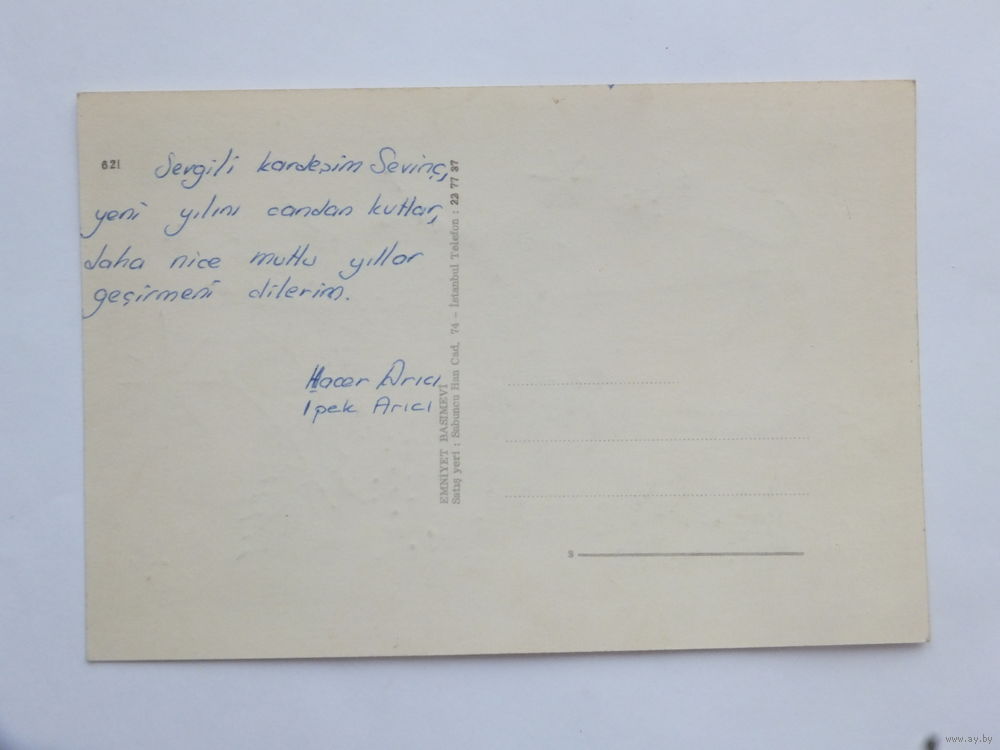 621
Sevgili kardeşim Sevinç,
yeni yılını candan kutlar,
daha nice mutlu yıllar
geçirmeni dilerim.
Hacer Arıcı
İpek Arıcı
EMNİYET BASIMEVİ
Satış yeri : Sabuncu Han Cad. 74 - İstanbul Telefon : 22 77 37
S
www.ay.by